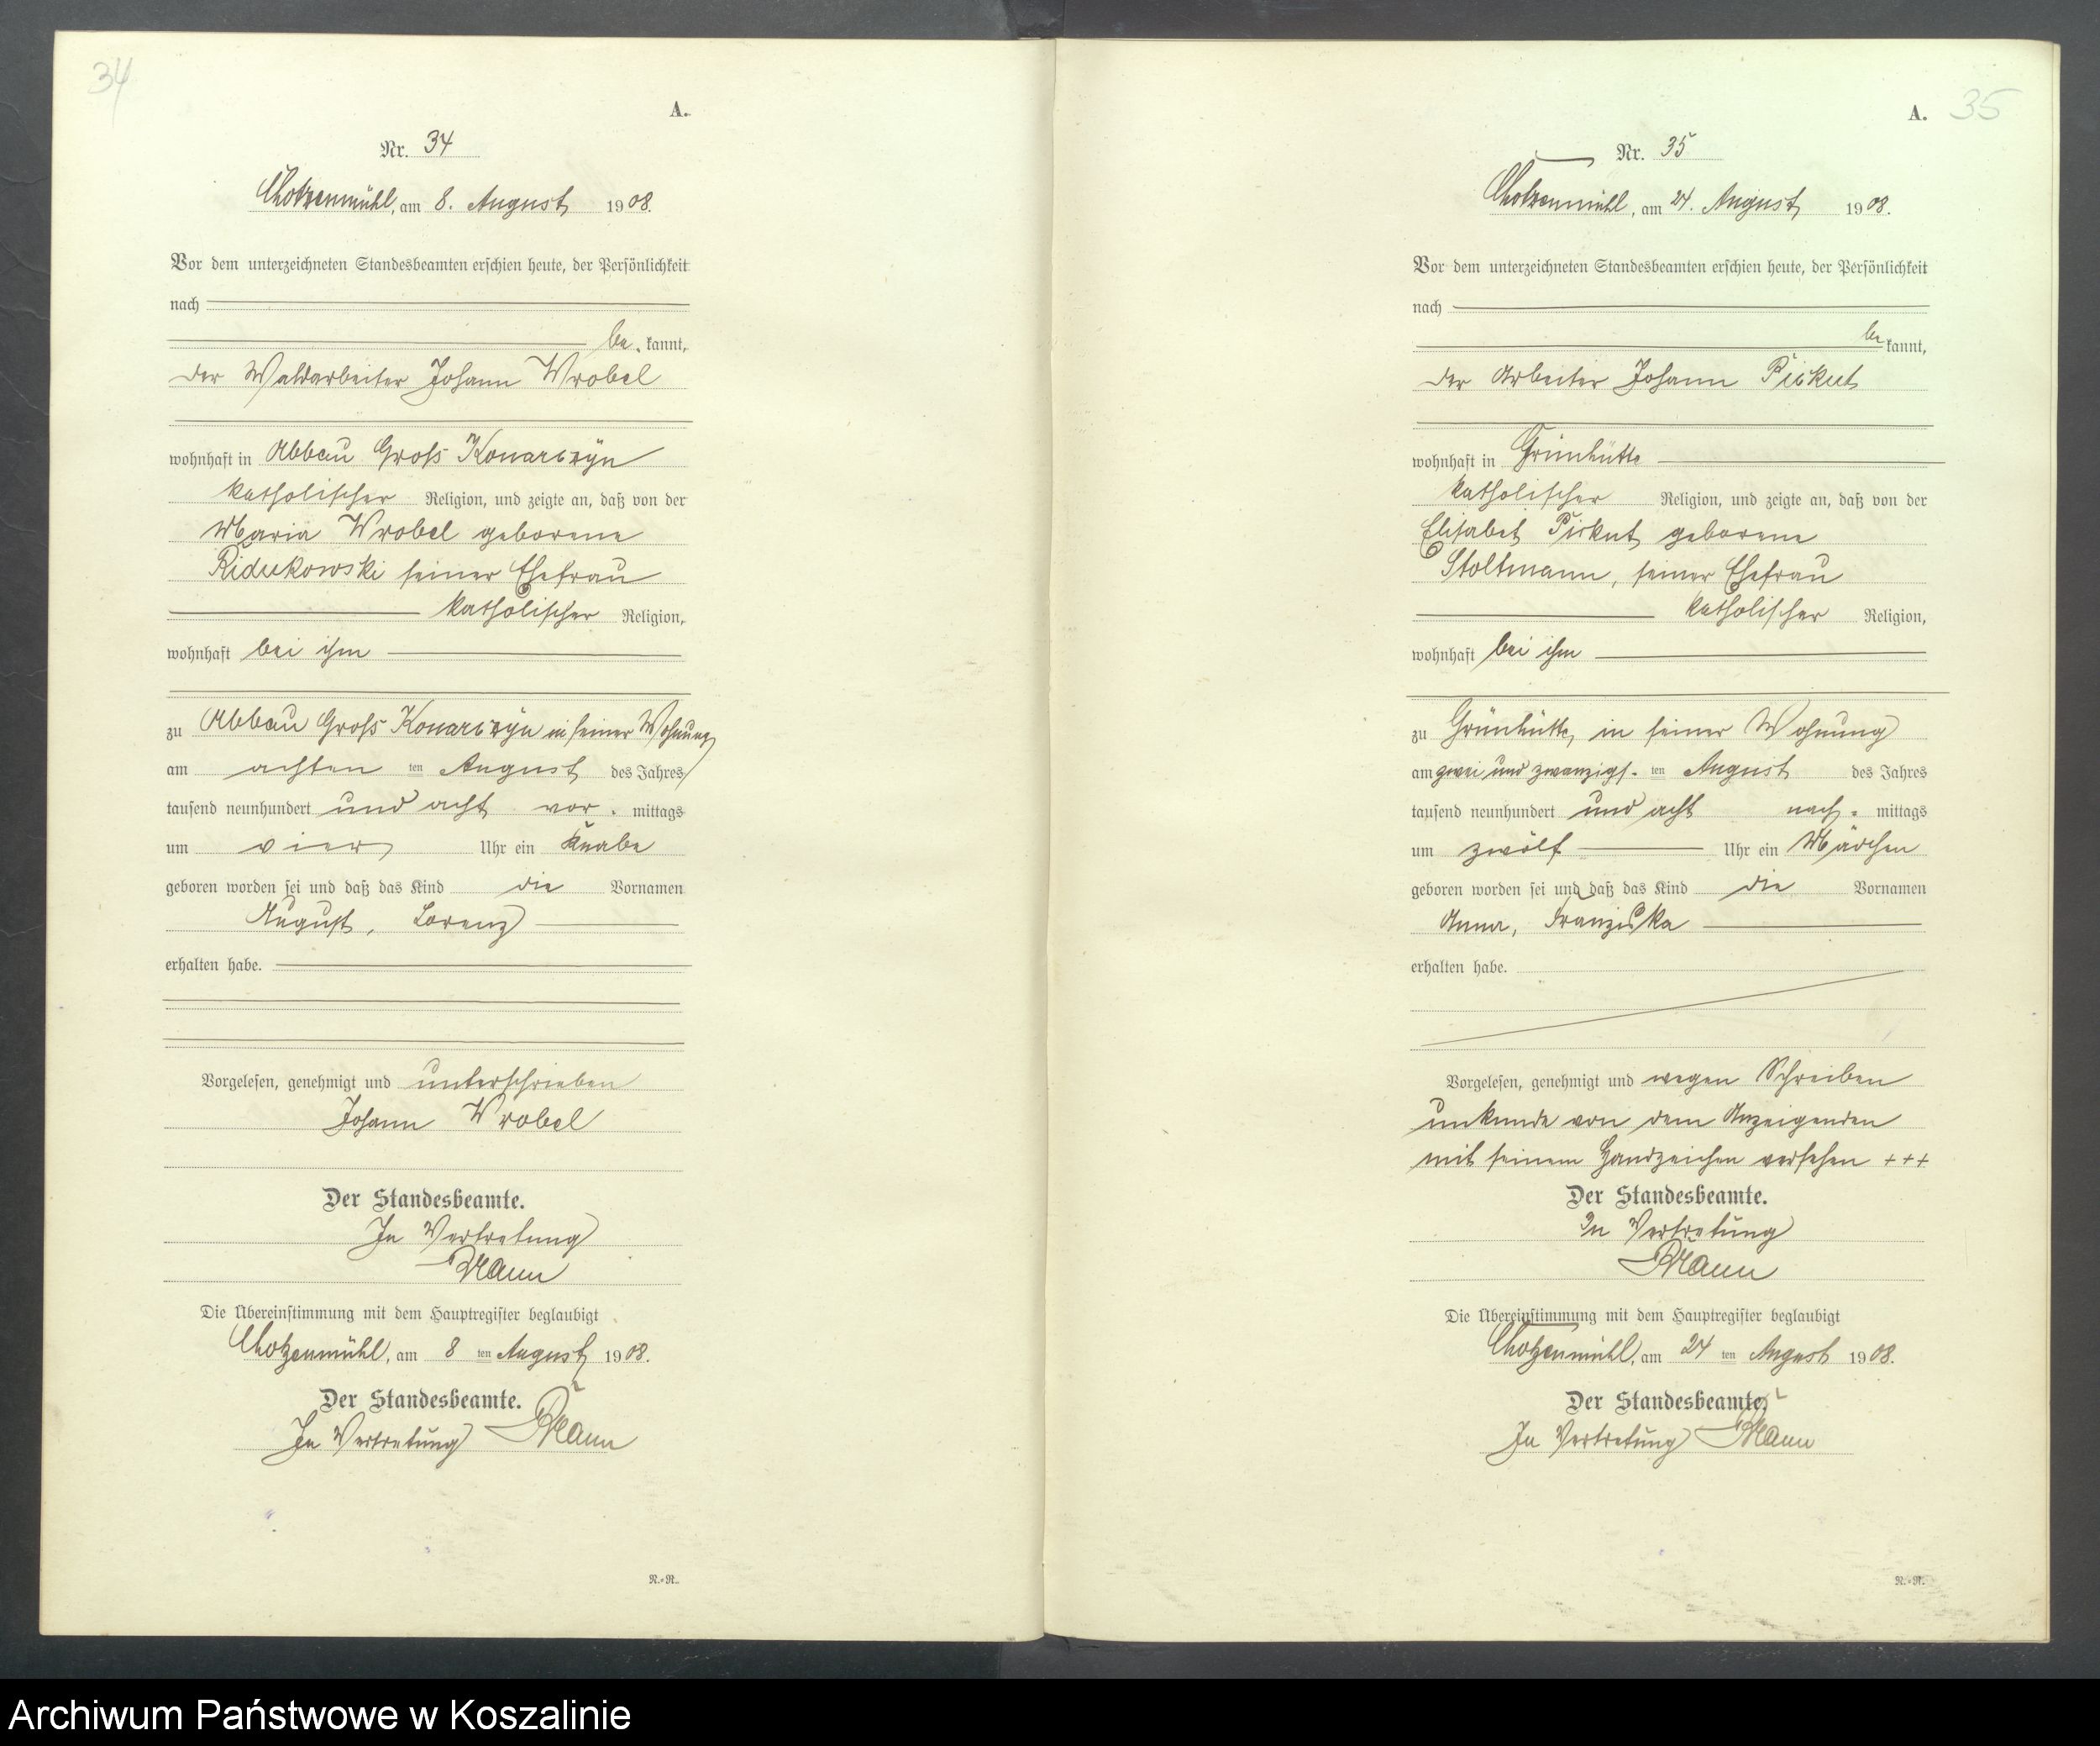 34
A.
Nr. 34
Chotzenmühl, am 8. August 1908.
Vor dem unterzeichneten Standesbeamten erschien heute, der Persönlichkeit
nach
be kannt,
der Waldarbeiter Johann Wrobel
wohnhaft in Abbau Gross Konarczyn
katholischer Religion, und zeigte an, daß von der
Maria Wrobel geborene
seiner Ehefrau
katholischer Religion,
wohnhaft bei ihm
zu Abbau Gross Konarczyn in seiner Wohnung
am achten ten August des Jahres
tausend neunhundert und acht vor mittags
um vier Uhr ein Knabe
geboren worden sei und daß das Kind die Vornamen
August, Lorenz
erhalten habe.
Vorgelesen, genehmigt und unterschrieben
Johann Wrobel
Der Standesbeamte.
In Vertretung
Die Übereinstimmung mit dem Hauptregister beglaubigt
Chotzenmühl, am 8 ten August 1908.
Der Standesbeamte.
In Vertretung
N.-R.
A. 35
Nr. 35
Chotzenmühl, am 24. August 1908.
Vor dem unterzeichneten Standesbeamten erschien heute, der Persönlichkeit
nach
be kannt,
der Arbeiter Johann
wohnhaft in Grünhütte
katholischer Religion, und zeigte an, daß von der
Elisabet geborene
Stoltmann, seiner Ehefrau
katholischer Religion,
wohnhaft bei ihm
zu Grünhütte, in seiner Wohnung
am zwei und zwanzigs- ten August des Jahres
tausend neunhundert und acht nach mittags
um zwölf Uhr ein Mädchen
geboren worden sei und daß das Kind die Vornamen
Anna, Franziska
erhalten habe.
Vorgelesen, genehmigt und wegen Schreiben
unkunde von dem Anzeigenden
mit seinem Handzeichen versehen +++
Der Standesbeamte.
In Vertretung
Die Übereinstimmung mit dem Hauptregister beglaubigt
Chotzenmühl, am 24 ten August 1908.
Der Standesbeamte.
In Vertretung
N.-R.
Archiwum Państwowe w Koszalinie